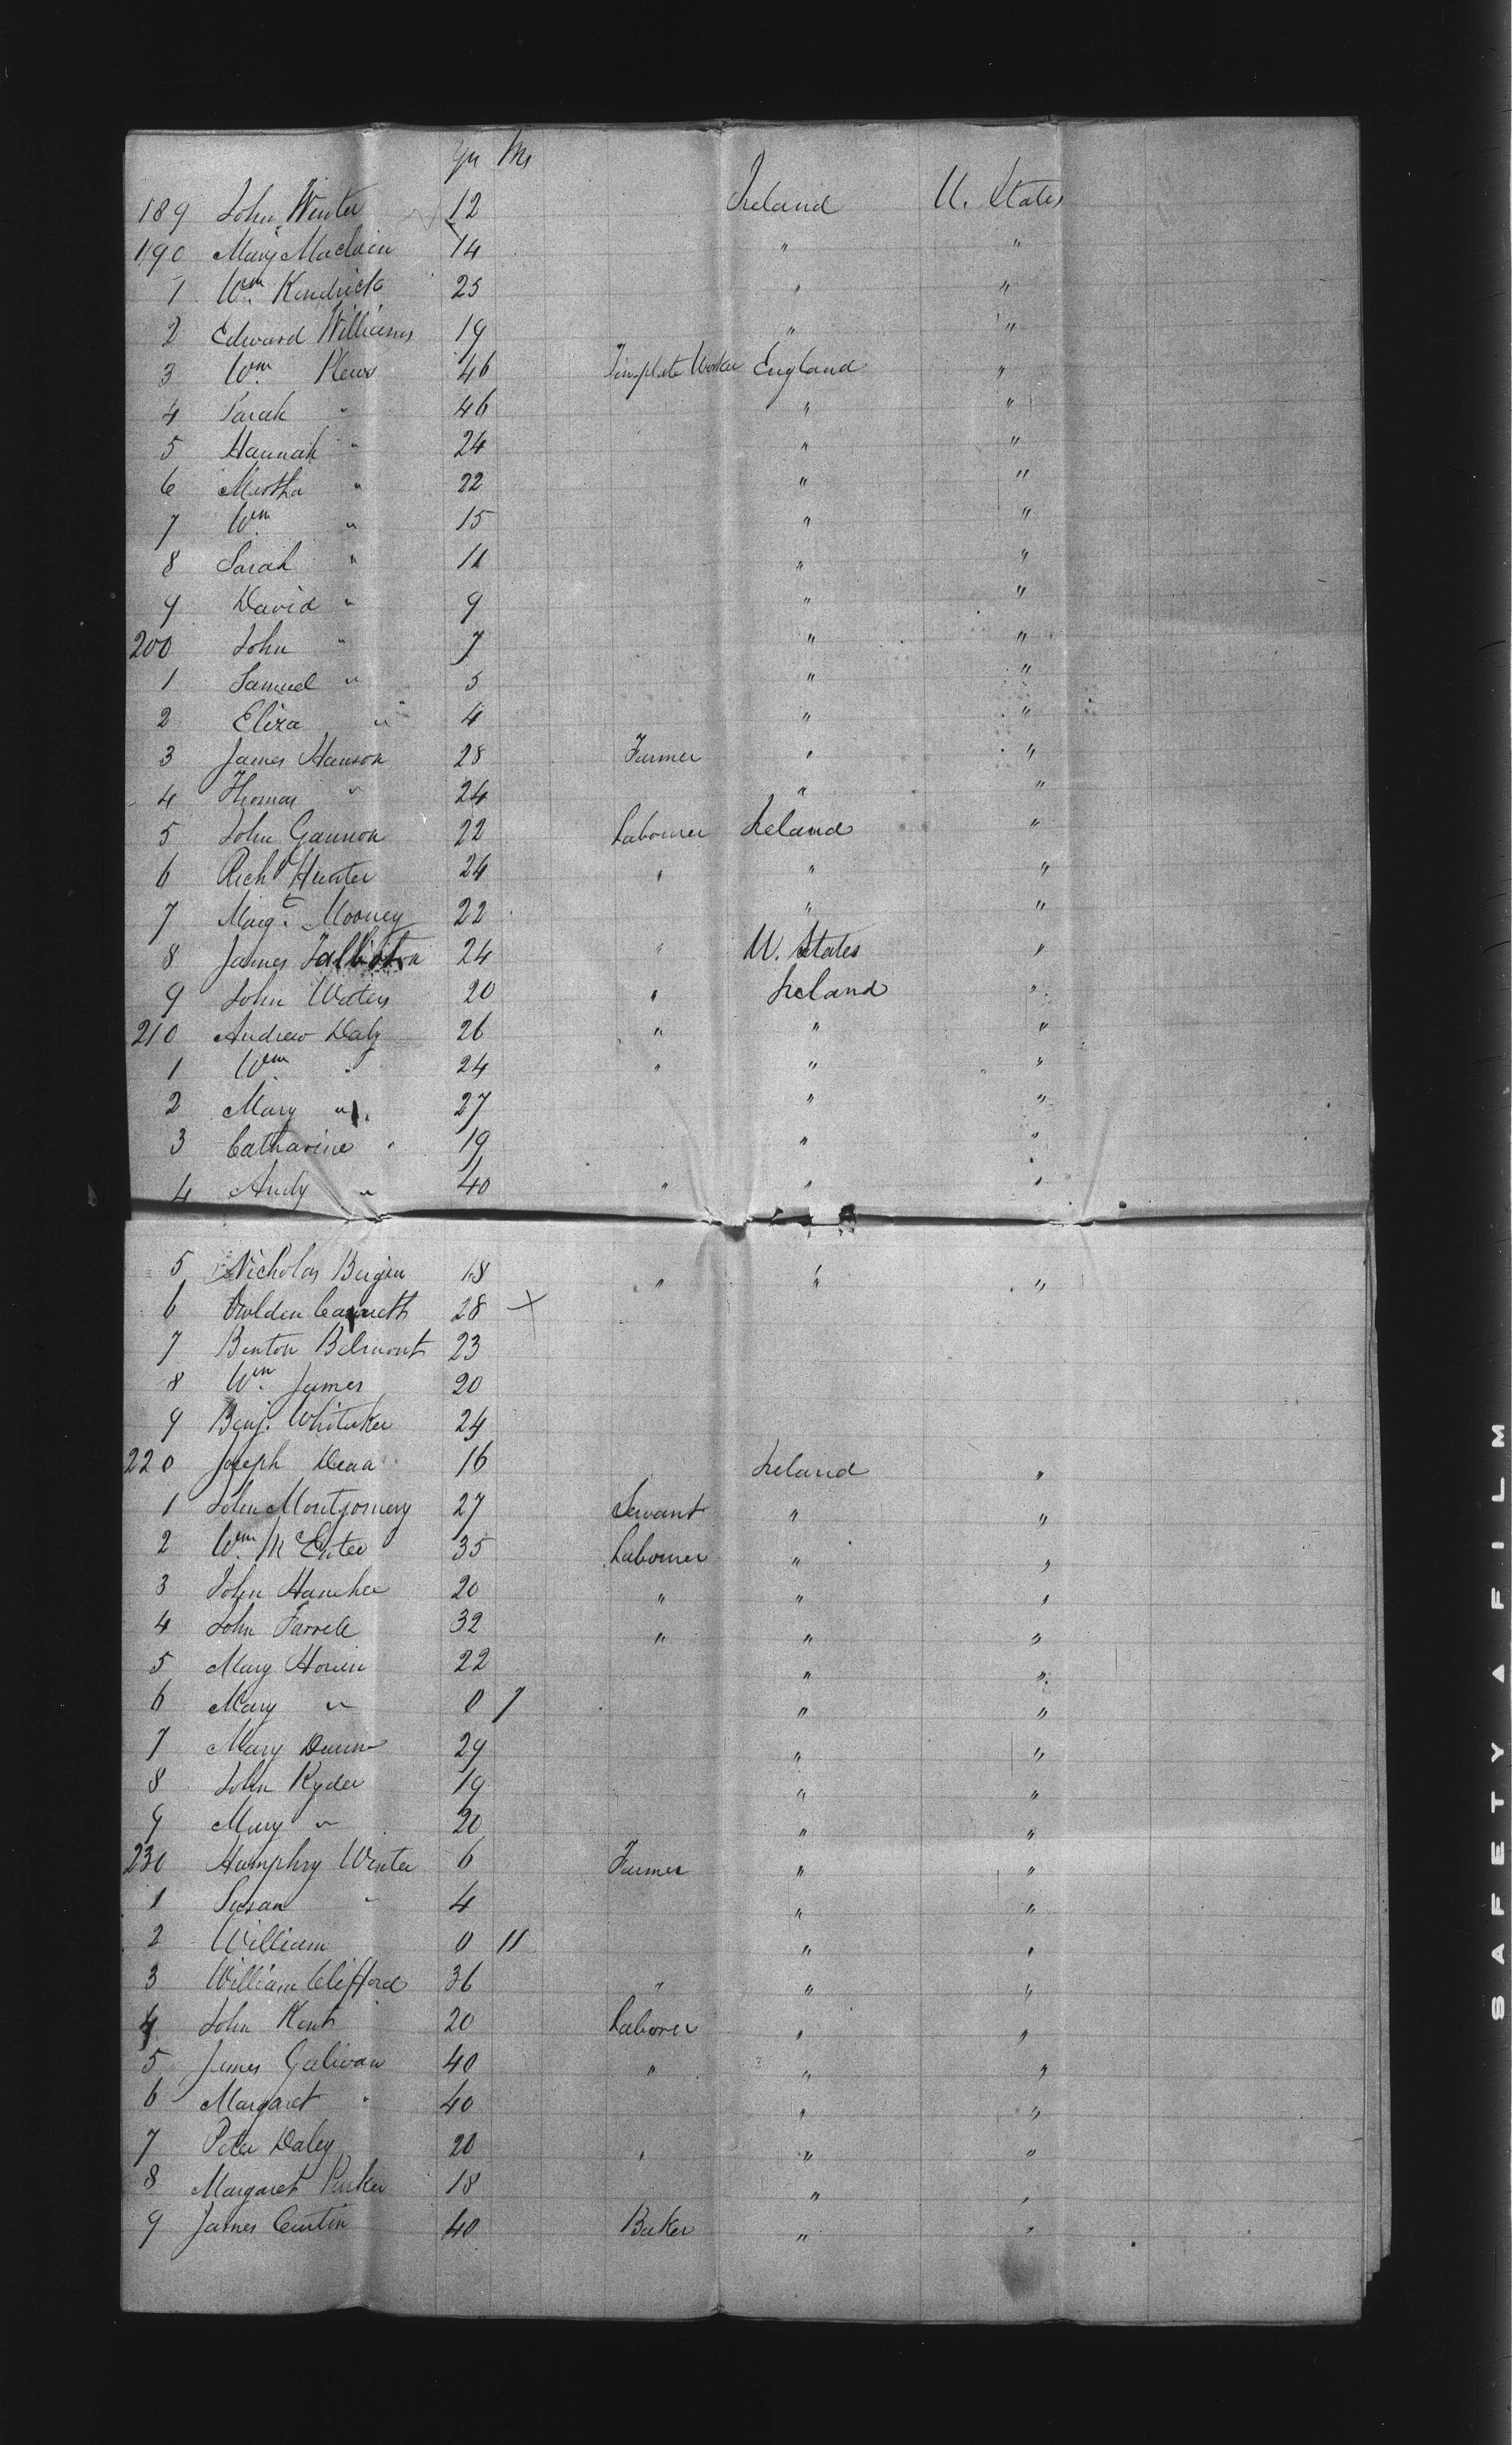 Yrs Ms
189 John Winter 12 Ireland U. States
190 Mary 14 " "
1 Wm. Kendrick 25 " "
2 Edward Williams 19 " "
3 Wm. Plews 46 Tinplate Worker England "
4 Sarah " 46 " "
5 Hannah " 24 " "
6 Martha " 22 " "
7 Wm. " 15 " "
8 Sarah " 11 " "
9 David " 9 " "
200 John " 7 " "
1 Samuel " 5 " "
2 Eliza " 4 " "
3 James Hanson 28 Farmer " "
4 Thomas " 24 " "
5 John Gannon 22 Labourer Ireland "
6 Richd Hunter 24 " " "
7 Margt. Mooney 22 " "
8 James 24 " U. States "
9 John Waters 20 " Ireland "
210 Andrew Daly 26 " " "
1 Wm. " 24 " " "
2 Mary " 27 " "
3 Catharine " 19 " "
4 Andy " 40 " " "
5 Nicholas Bergin 18 " " "
6 28 X
7 Benton Belmont 23
8 Wm. James 20
9 Benj. Whitaker 24
220 Joseph Dean 16 Ireland "
1 John Montgomery 27 Servant " "
2 Wm. McEntee 35 Labourer " "
3 John 20 " " "
4 John Farrell 32 " " "
5 Mary 22 " "
6 Mary " 0 7 " "
7 Mary Dunn 29 " "
8 John Ryder 19 " "
9 Mary " 20 " "
230 Humphry Winter 6 Farmer " "
1 Susan " 4 " "
2 William 0 11 " "
3 William Clifford 36 " " "
4 John Kent 20 Laborer " "
5 James Galivan 40 " " "
6 Margaret " 40 " "
7 Peter Daley 20 " " "
8 Margaret 18 " "
9 James Curtin 40 Baker " "
SAFETY A FILM